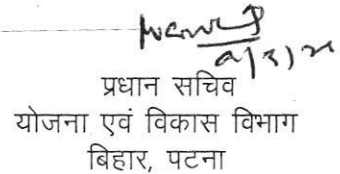 प्रधान सचिव
योजना एवं विकास विभाग
बिहार, पटना